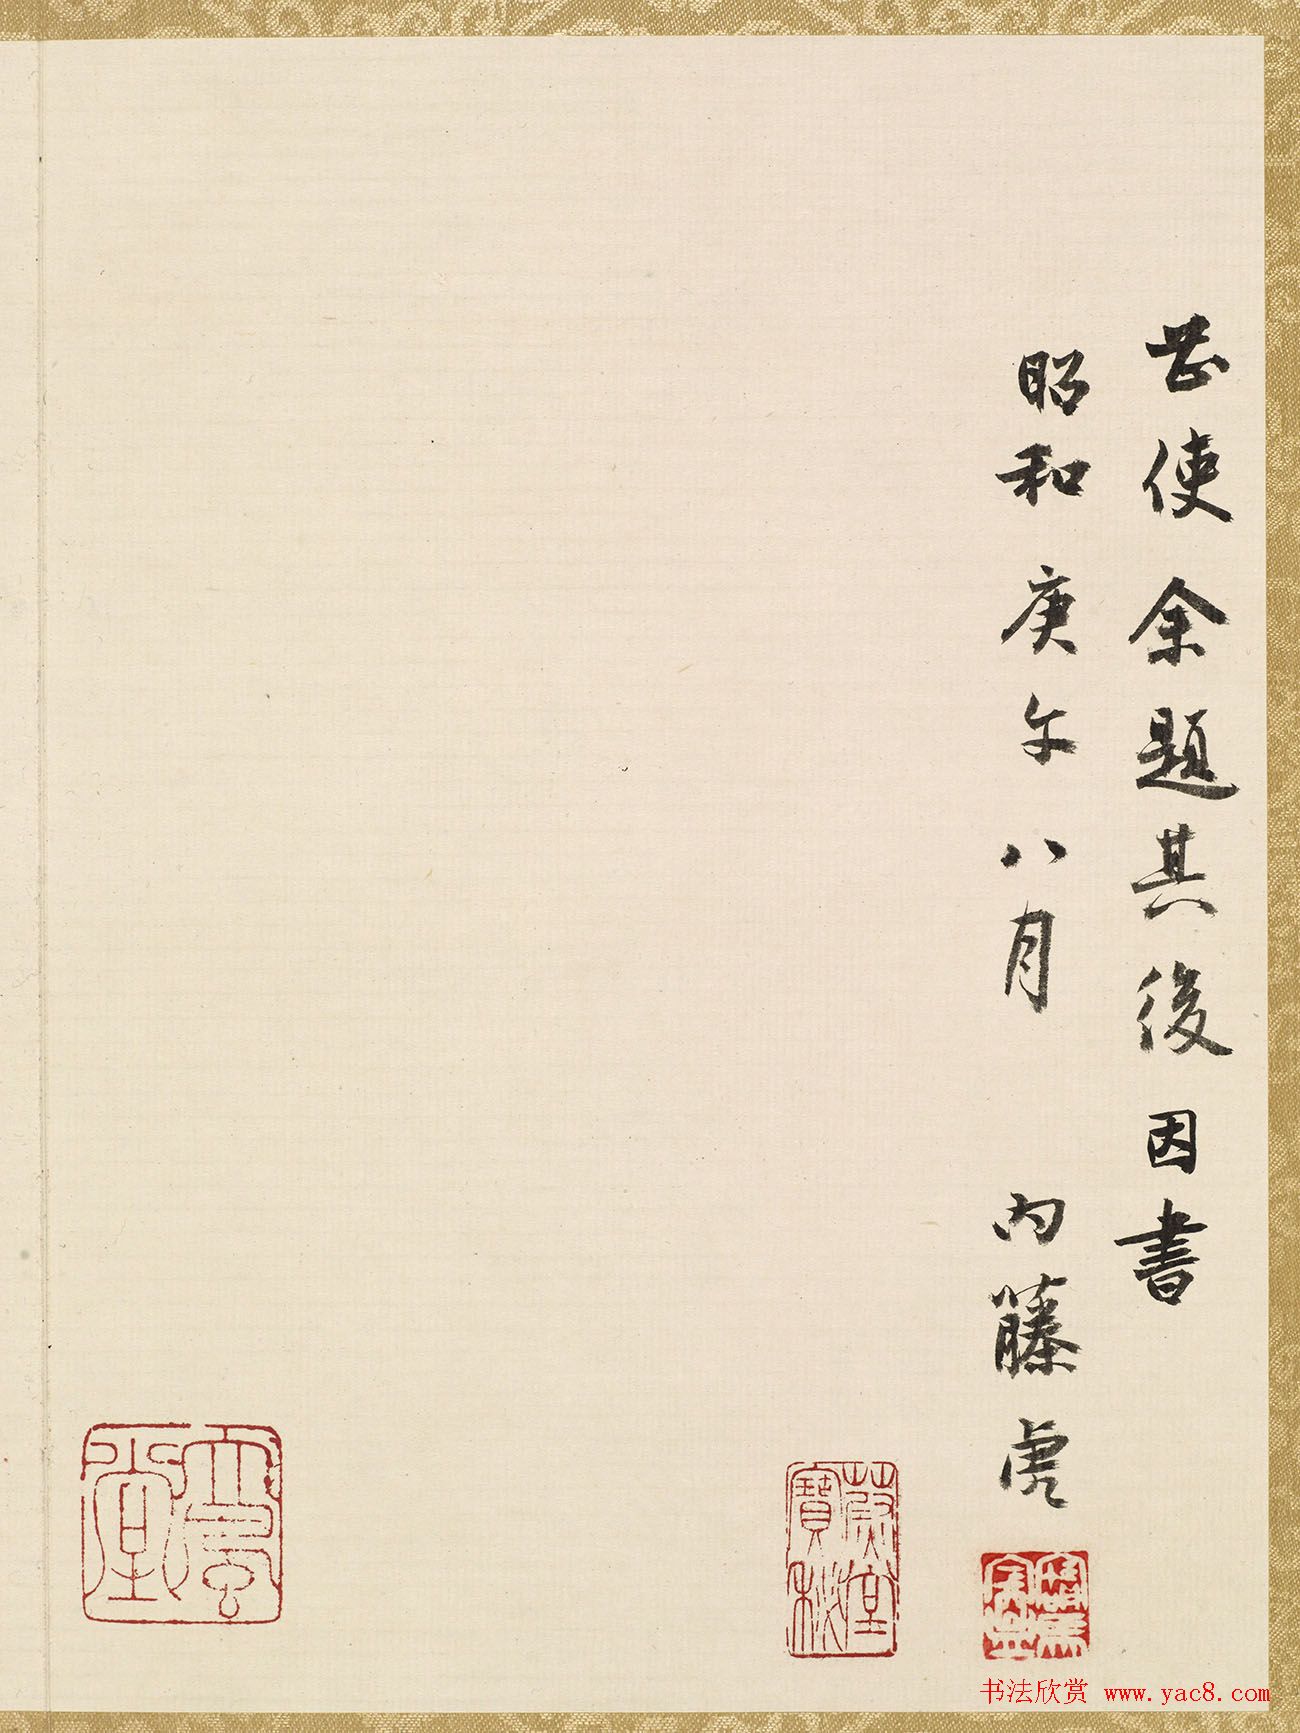 使余題其後因書
昭和庚午八月 内藤虎
书法欣赏 www.yac8.com